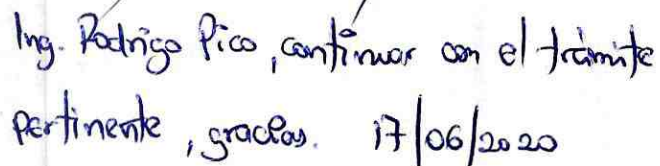 Ing. Rodrigo Pico, continuar con el trámite
pertinente, gracias. 17/06/2020